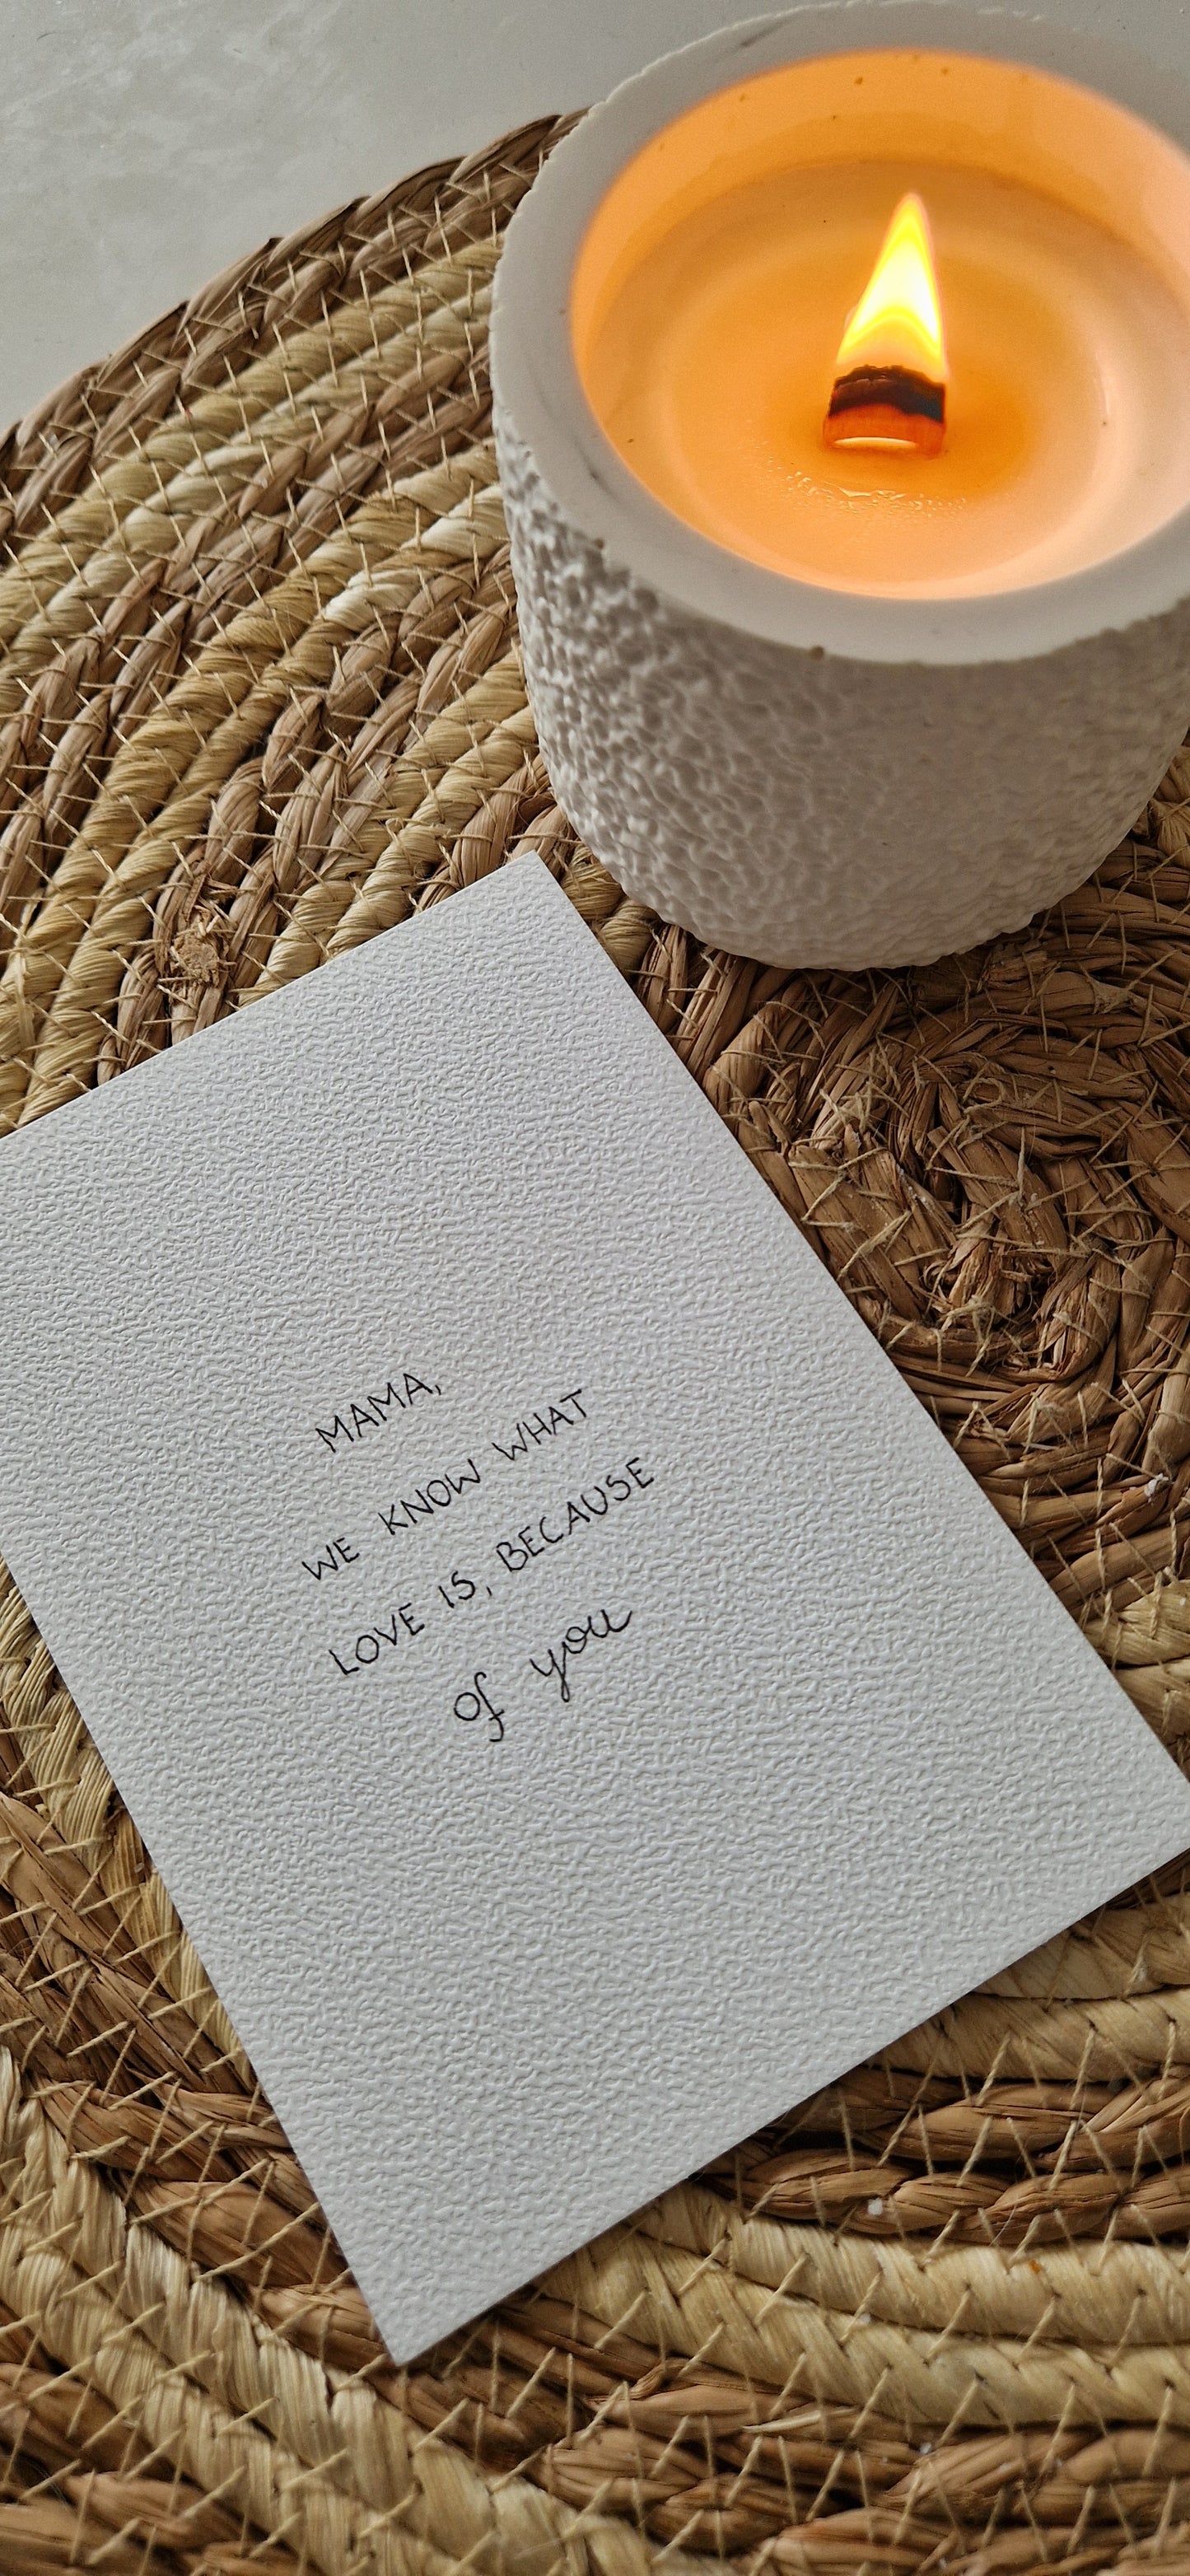 MAMA,
WE KNOW WHAT
LOVE IS, BECAUSE
of you